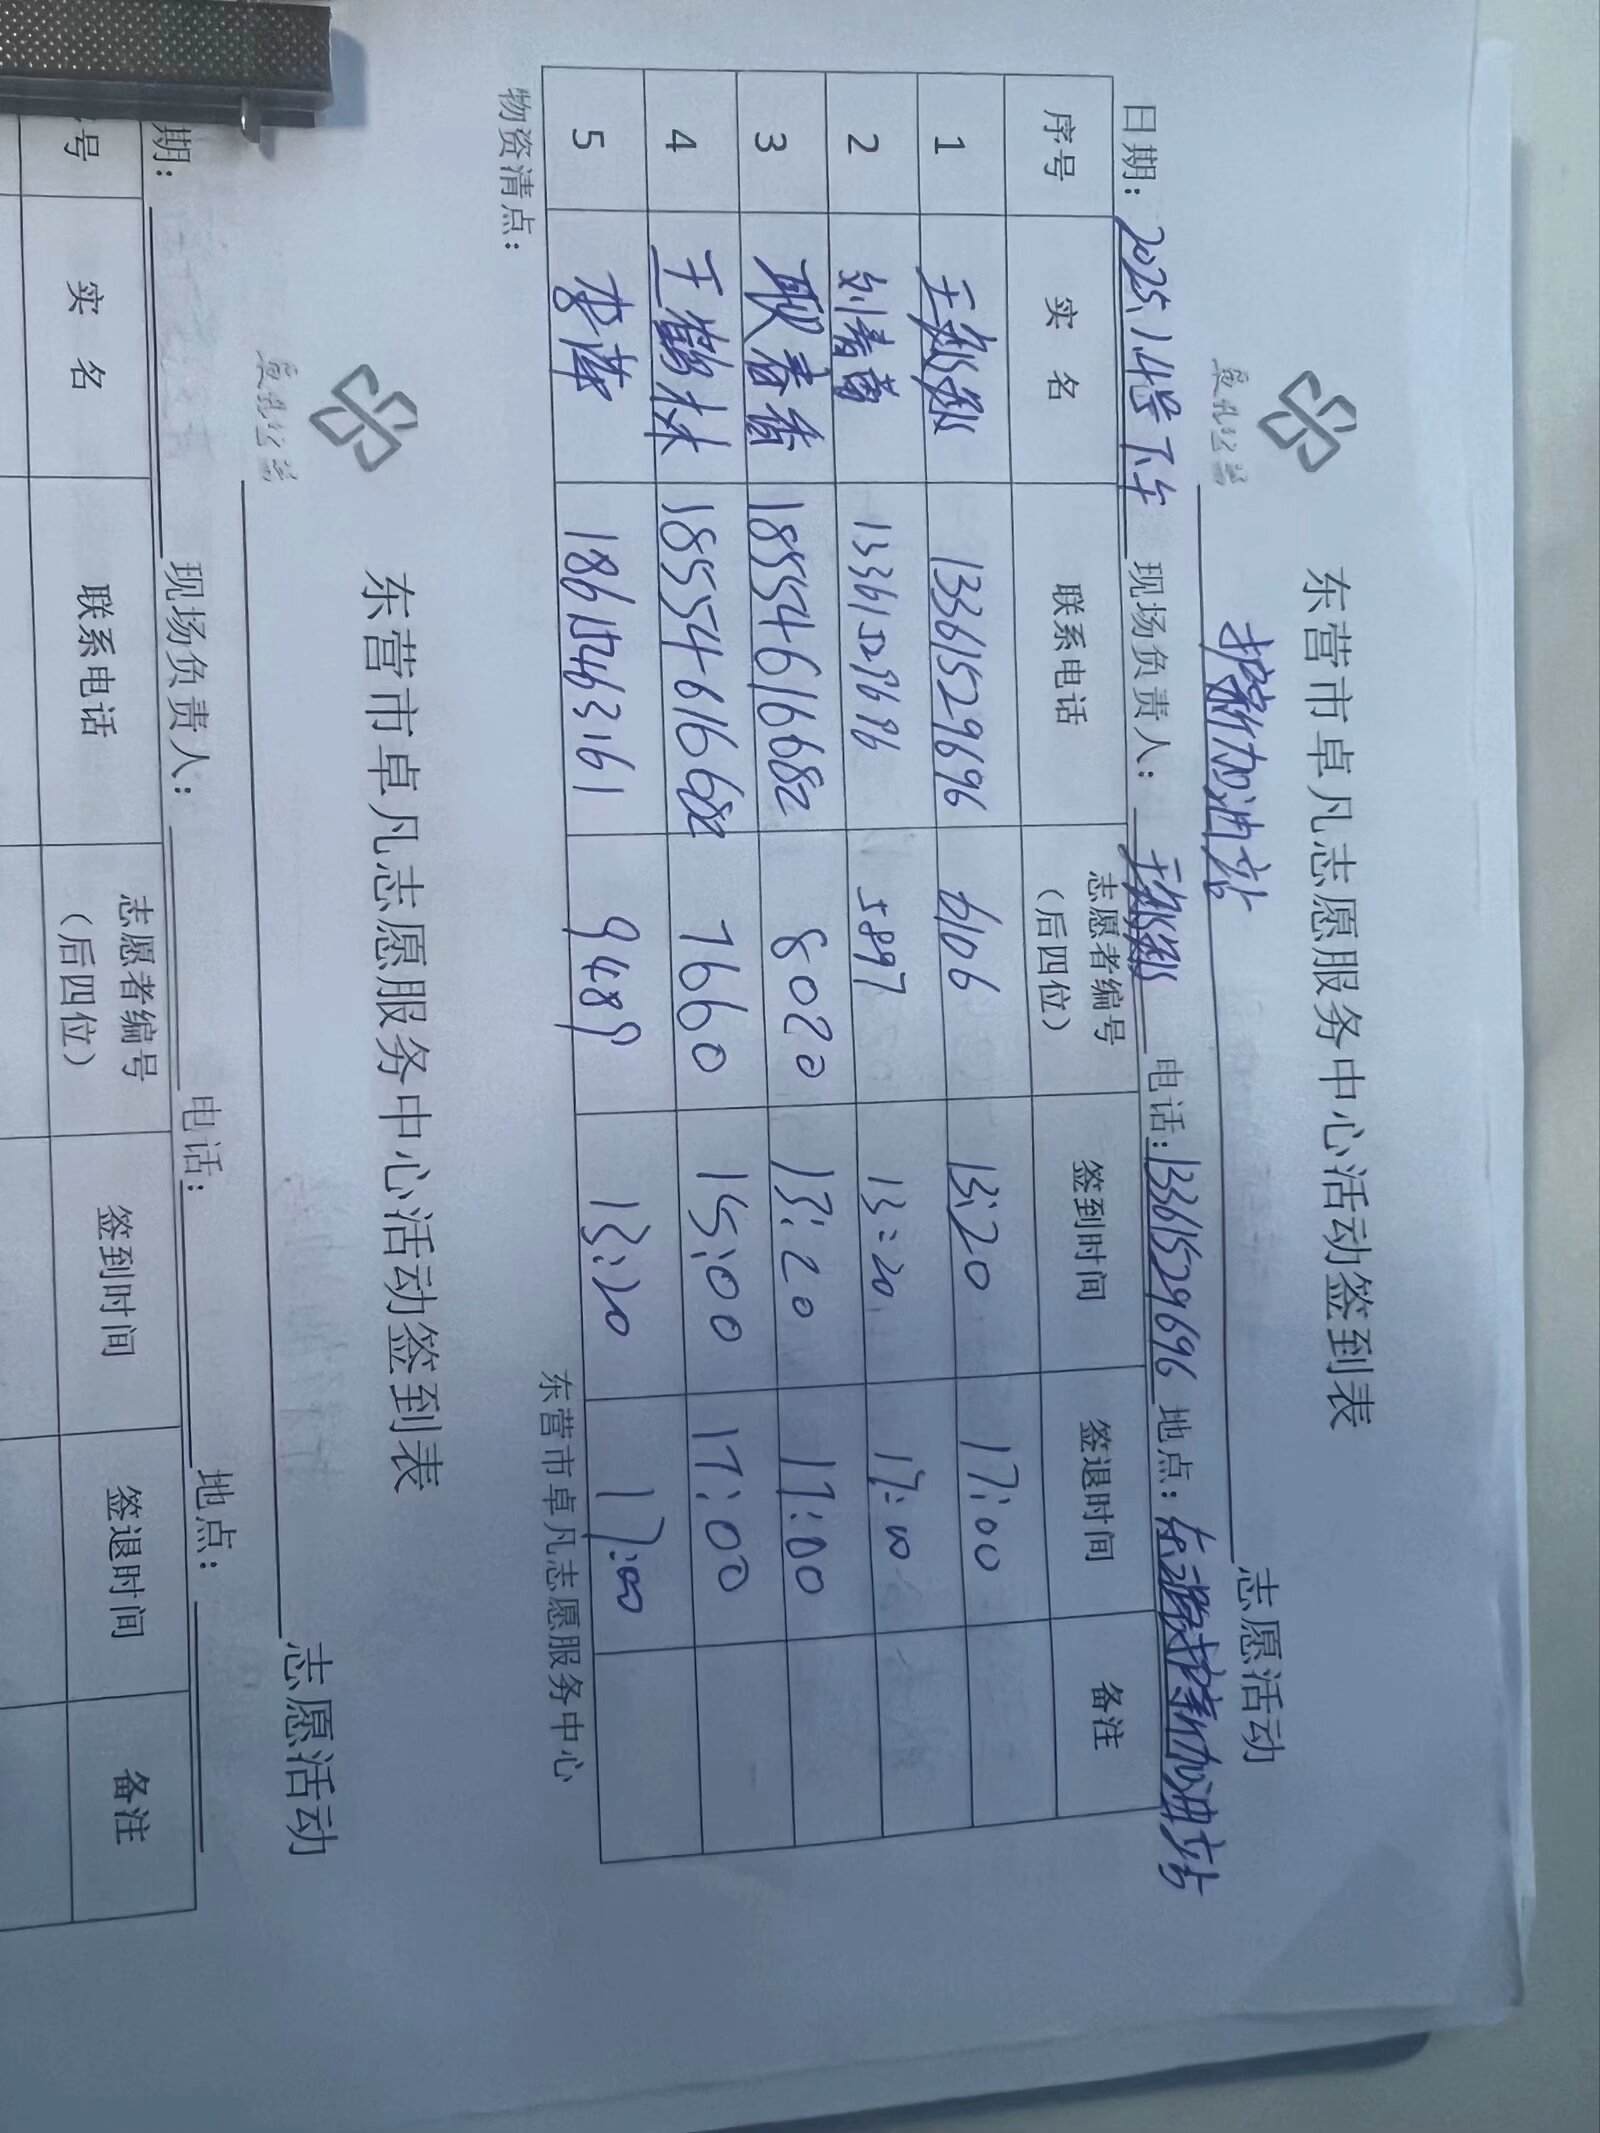 东营市卓凡志愿服务中心活动签到表
护新加油站 志愿活动
日期: 2025.1.4号下午 现场负责人: 电话: 13361529696 地点: 护新加油站
序号 实 名 联系电话 志愿者编号（后四位） 签到时间 签退时间 备注
1 13361529696 6106 13:20 17:00
2 刘青菊 13361529696 5897 13:20 17:00
3 耿春香 18554616682 8020 13:20 17:00
4 王鹤林 18554616682 7660 15:00 17:00
5 李萍 18615463161 9489 13:20 17:00
物资清点: 东营市卓凡志愿服务中心
东营市卓凡志愿服务中心活动签到表
志愿活动
期: 现场负责人: 电话: 地点:
号 实 名 联系电话 志愿者编号（后四位） 签到时间 签退时间 备注